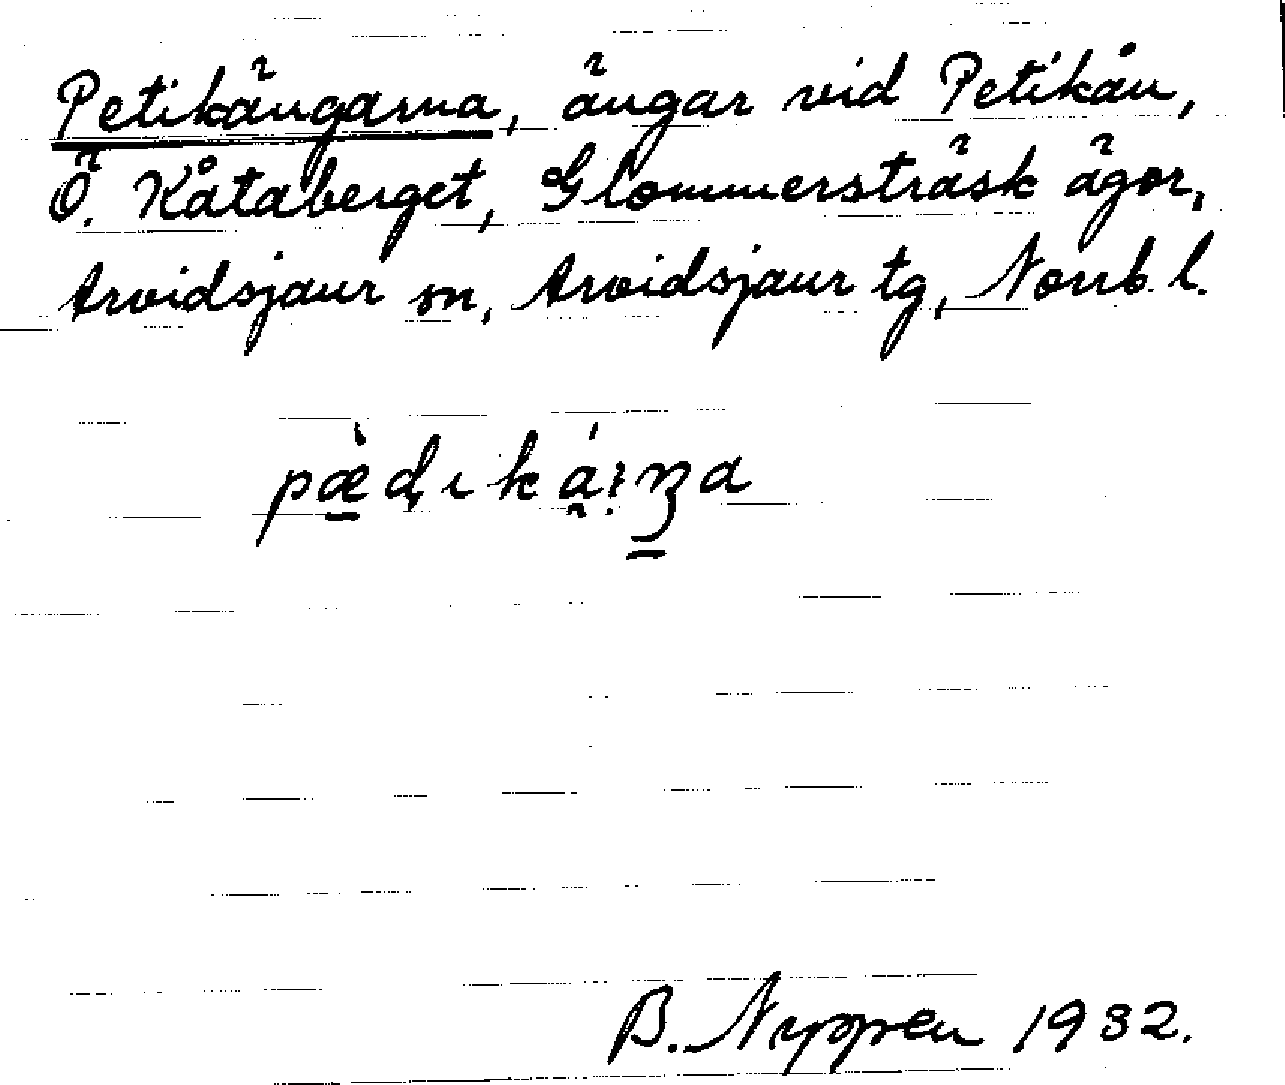 Petikängarna, ängar vid Petikån,
Ö. Kåtaberget, Glommersträsk ägor,
Arvidsjaur sn, Arvidsjaur tg, Norrb. l.
B. Nyppen 1932.